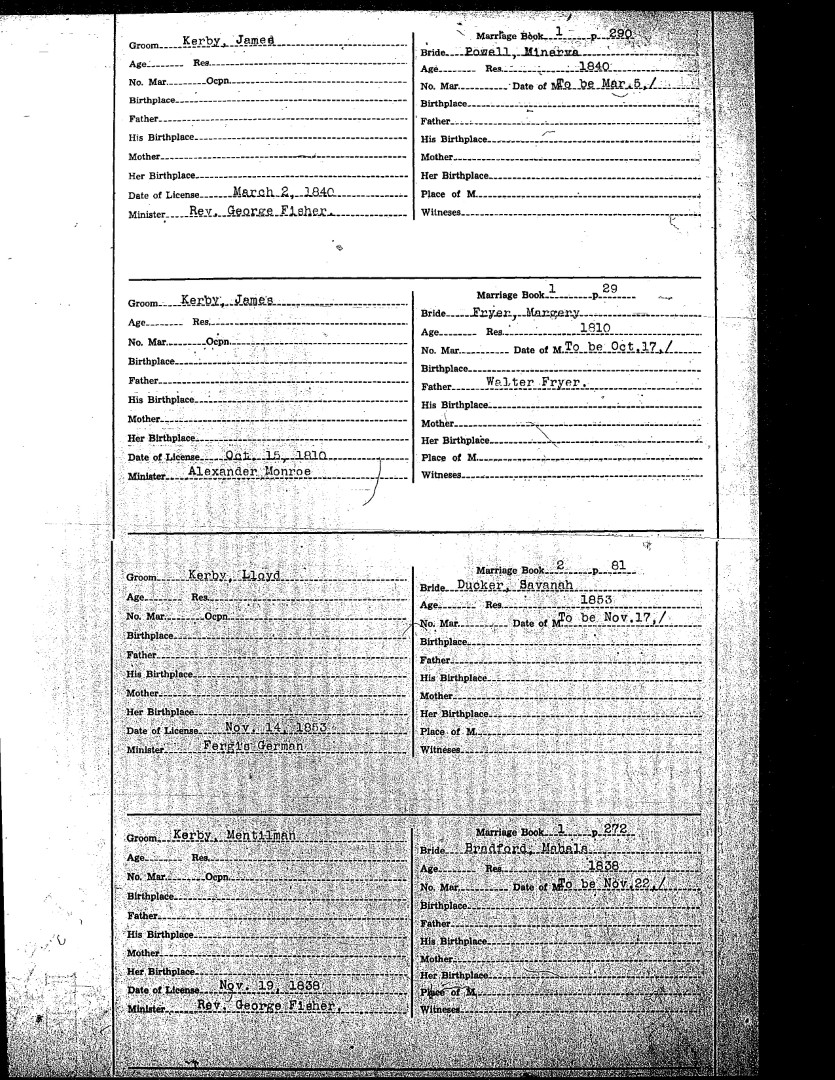 Groom Kerby, James
Age Res.
No. Mar. Ocpn.
Birthplace
Father
His Birthplace
Mother
Her Birthplace
Date of License March 2, 1840
Minister Rev. George Fisher.
Marriage Book 1 p. 290
Bride Powell, Minerva
Age Res. 1840
No. Mar. Date of M. To be Mar.5,/
Birthplace
Father
His Birthplace
Mother
Her Birthplace
Place of M.
Witnesses
Groom Kerby, James
Age Res.
No. Mar. Ocpn.
Birthplace
Father
His Birthplace
Mother
Her Birthplace
Date of License Oct. 15, 1810
Minister Alexander Monroe
Marriage Book 1 p. 29
Bride Fryer, Margery
Age Res. 1810
No. Mar. Date of M. To be Oct.17,/
Birthplace
Father Walter Fryer.
His Birthplace
Mother
Her Birthplace
Place of M.
Witnesses
Groom Kerby, Lloyd
Age Res.
No. Mar. Ocpn.
Birthplace
Father
His Birthplace
Mother
Her Birthplace
Date of License Nov. 14, 1853
Minister Fergis German
Marriage Book 2 p. 81
Bride Ducker, Savanah
Age Res. 1853
No. Mar. Date of M. To be Nov.17,/
Birthplace
Father
His Birthplace
Mother
Her Birthplace
Place of M.
Witnesses
Groom Kerby, Mentilman
Age Res.
No. Mar. Ocpn.
Birthplace
Father
His Birthplace
Mother
Her Birthplace
Date of License Nov. 19, 1838
Minister Rev. George Fisher.
Marriage Book 1 p. 272
Bride Bradford, Mahala
Age Res. 1838
No. Mar. Date of M. To be Nov.22,/
Birthplace
Father
His Birthplace
Mother
Her Birthplace
Place of M.
Witnesses